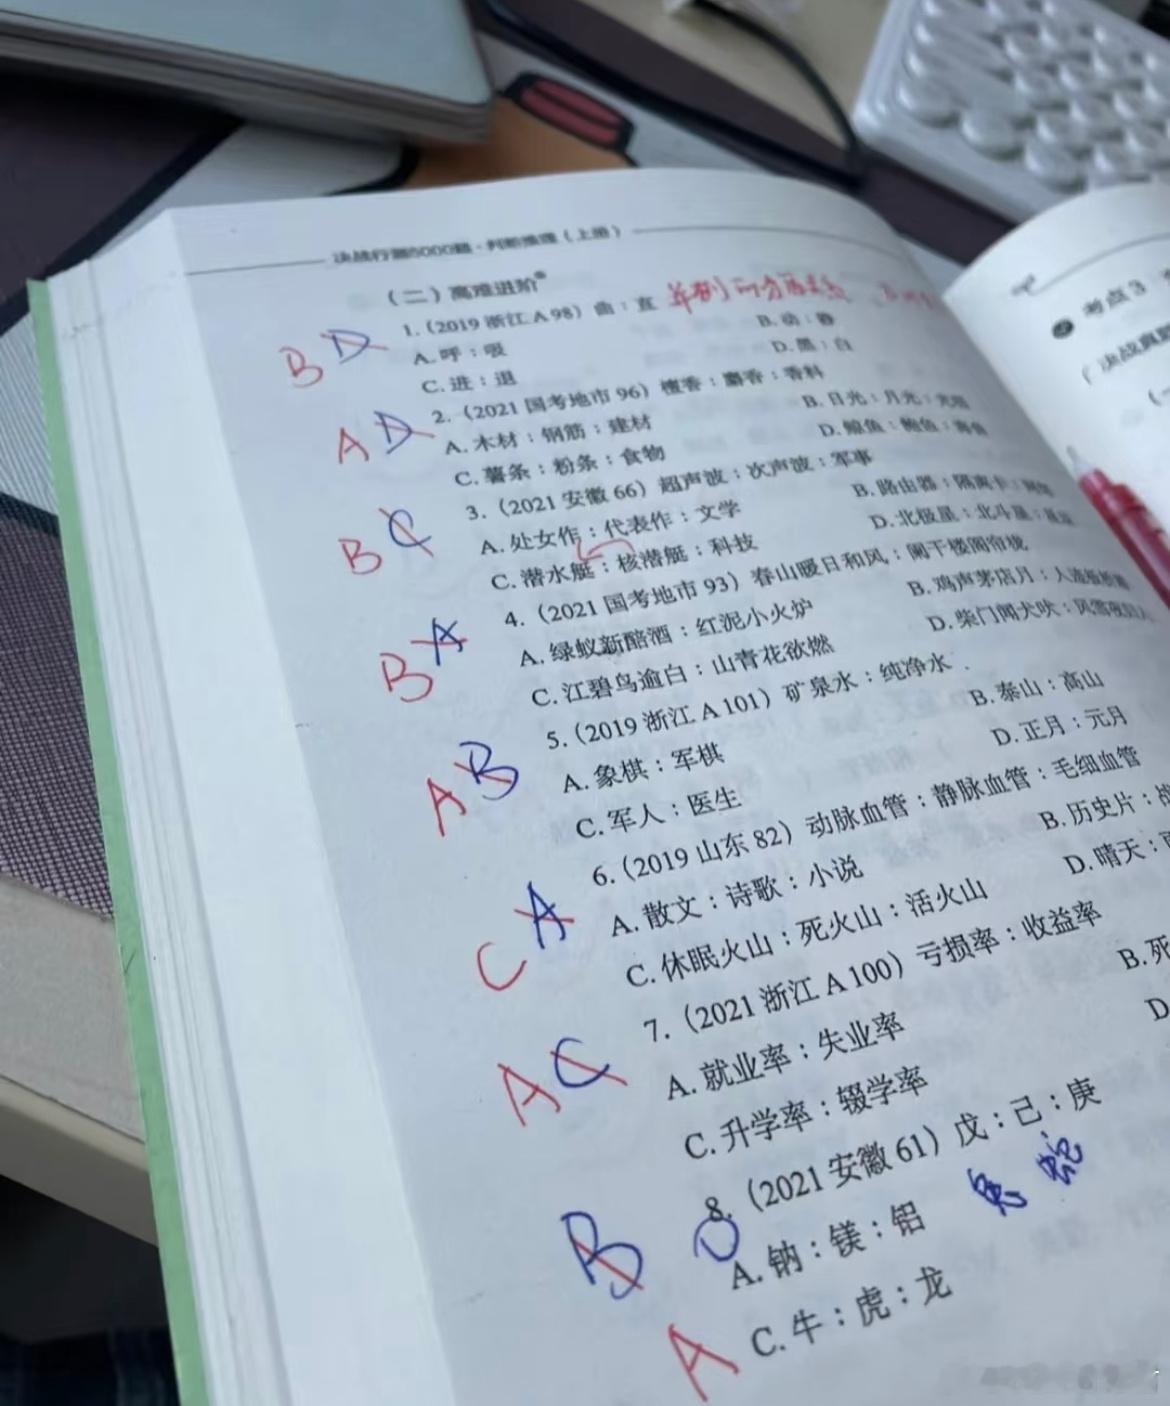 决战行测5000题·判断推理（上册）
（二）高难进阶
1.（2019 浙江 A 98）曲：直
B D
A. 呼：吸 B. 动：静
C. 进：退 D. 黑：白
2.（2021 国考地市 96）檀香：麝香：香料
A D
A. 木材：钢筋：建材 B. 日光：月光：光
C. 薯条：粉条：食物 D. 鲸鱼：鲍鱼：
3.（2021 安徽 66）超声波：次声波：军事
B C
A. 处女作：代表作：文学 B. 路由器：隔离卡：
C. 潜水艇：核潜艇：科技 D. 北极星：北斗星：
4.（2021 国考地市 93）春山暖日和风：阑干楼阁帘栊
B A
A. 绿蚁新醅酒：红泥小火炉 B. 鸡声茅店月：人迹板桥霜
C. 江碧鸟逾白：山青花欲燃 D. 柴门闻犬吠：风雪夜归人
5.（2019 浙江 A 101）矿泉水：纯净水
A B
A. 象棋：军棋 B. 泰山：高山
C. 军人：医生 D. 正月：元月
6.（2019 山东 82）动脉血管：静脉血管：毛细血管
C A
A. 散文：诗歌：小说 B. 历史片：
C. 休眠火山：死火山：活火山 D. 晴天：
7.（2021 浙江 A 100）亏损率：收益率
A C
A. 就业率：失业率 B. 死
C. 升学率：辍学率 D
8.（2021 安徽 61）戊：己：庚
B
兔 蛇
A. 钠：镁：铝
A
C. 牛：虎：龙
考点 3